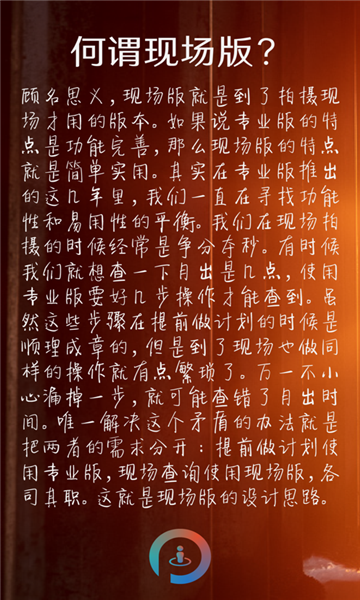 何谓现场版？
顾名思义，现场版就是到了拍摄现
场才用的版本。如果说专业版的特
点是功能完善，那么现场版的特点
就是简单实用。其实在专业版推出
的这几年里，我们一直在寻找功能
性和易用性的平衡。我们在现场拍
摄的时候经常是争分夺秒。有时候
我们就想查一下月出是几点，使用
专业版要好几步操作才能查到。虽
然这些步骤在提前做计划的时候是
顺理成章的，但是到了现场也做同
样的操作就有点繁琐了。万一不小
心漏掉一步，就可能查错了月出时
间。唯一解决这个矛盾的办法就是
把两者的需求分开：提前做计划使
用专业版，现场查询使用现场版，各
司其职。这就是现场版的设计思路。